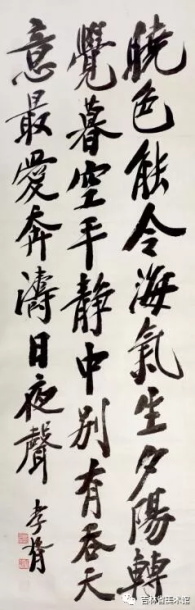 曉色能令海氣生夕陽轉
覺暮空平靜中別有吞天
意最愛奔濤日夜聲
孝胥
吉林省美术馆